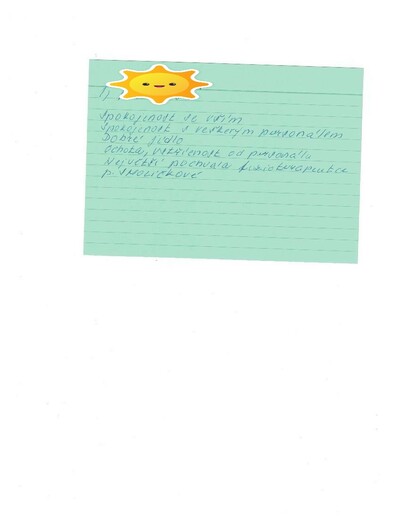 Spokojenost se vším
Spokojenost s veškerým personálem
Dobré jídlo
Ochota, vstřícnost od personálu
Největší pochvala fyzioterapeutce
p. Smolíčkové